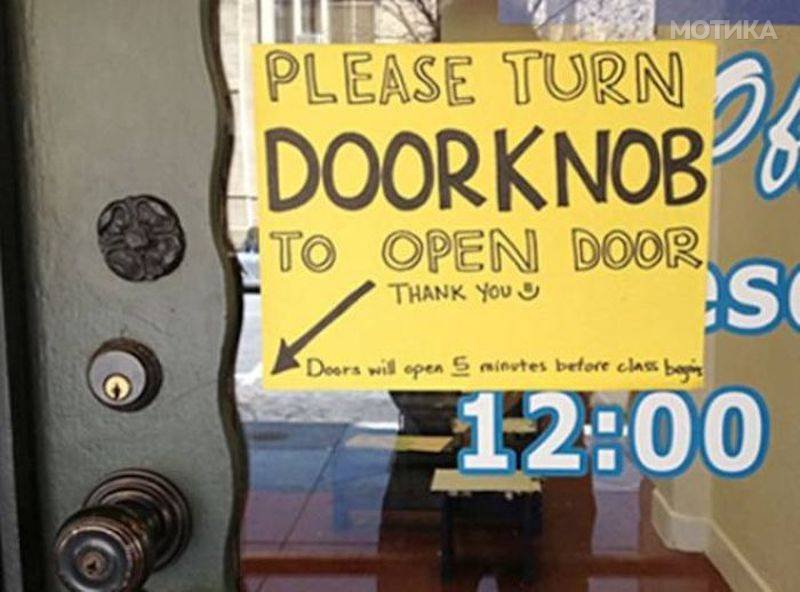 МОТИКА
PLEASE TURN
DOORKNOB
TO OPEN DOOR
THANK YOU
Doors will open 5 minutes before class begins
12:00